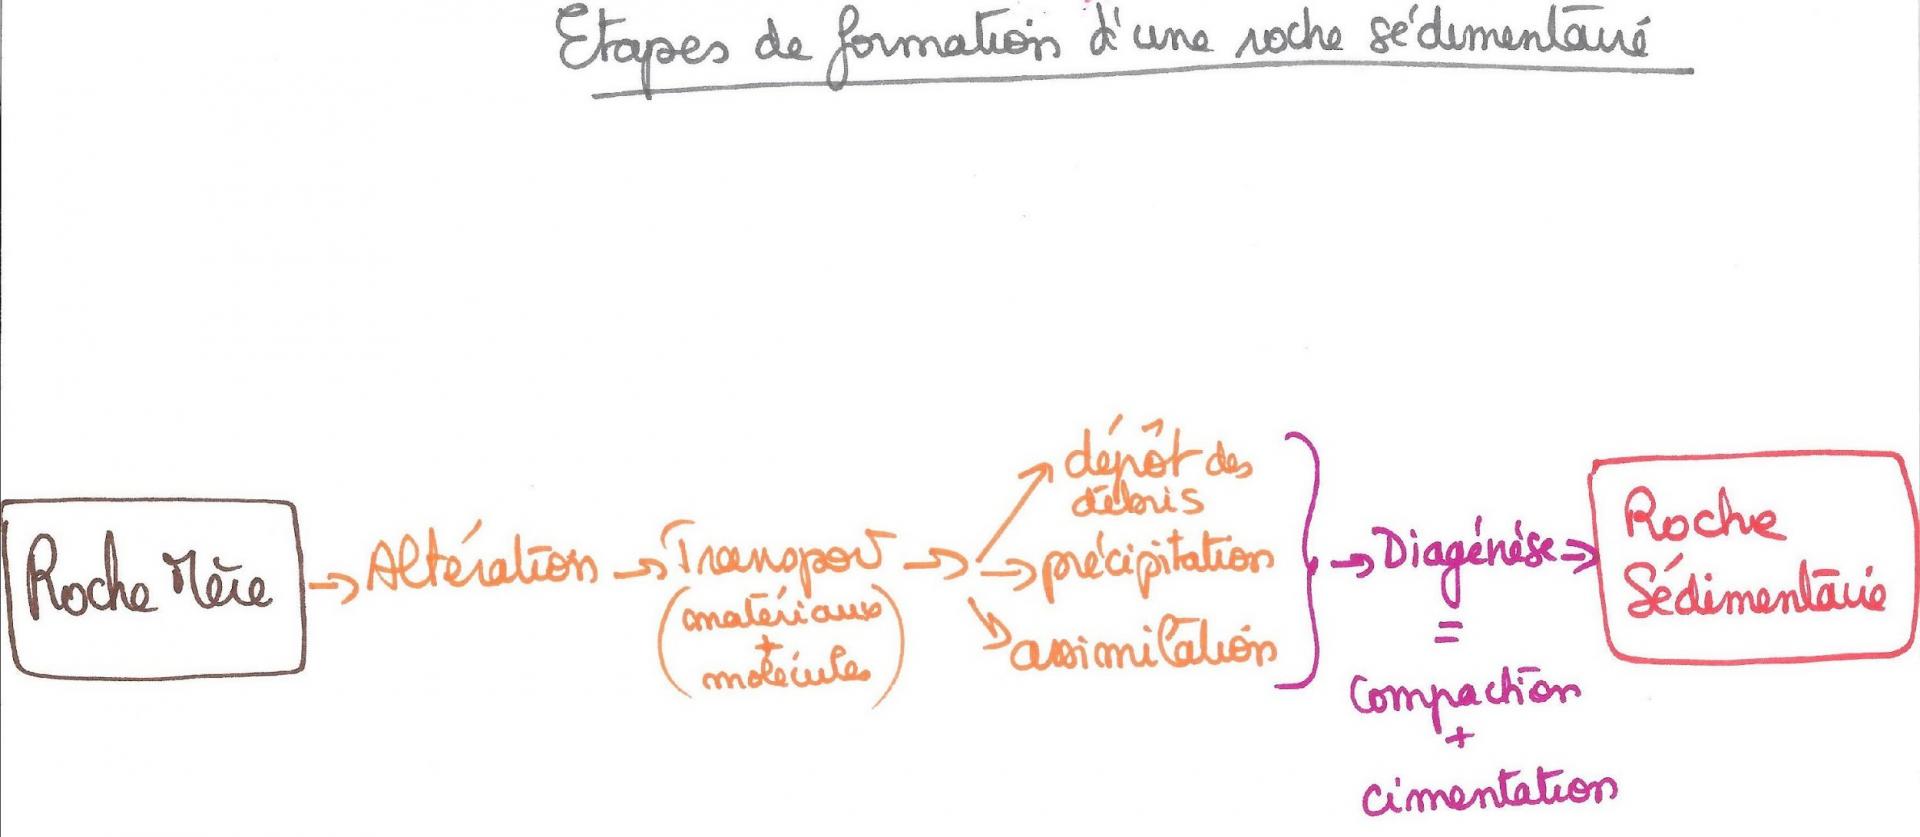 Etapes de formation d'une roche sédimentaire
Roche Mère
Altération
Transport
(matériaux
+
molécules)
dépôt des
débris
précipitation
assimilation
Diagénèse
=
Compaction
+
cimentation
Roche
Sédimentaire